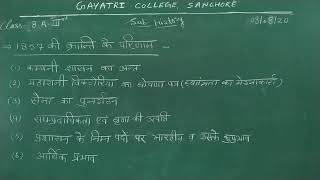 GAYATRI COLLEGE, SANCHORE
Class B.A-III Sub History 03/08/20
→ 1857 की क्रान्ति के परिणाम →
(1) कम्पनी शासन का अन्त
(2) महारानी विक्टोरिया का घोषणा पत्र (स्वाधीनता का मेग्नाकार्टा)
(3) सेना का पुनर्गठन
(4) साम्प्रदायिकता एवं घृणा की उत्पत्ति
(5) प्रशासन के निम्न पदों पर भारतीय व उसके
(6) आर्थिक प्रभाव